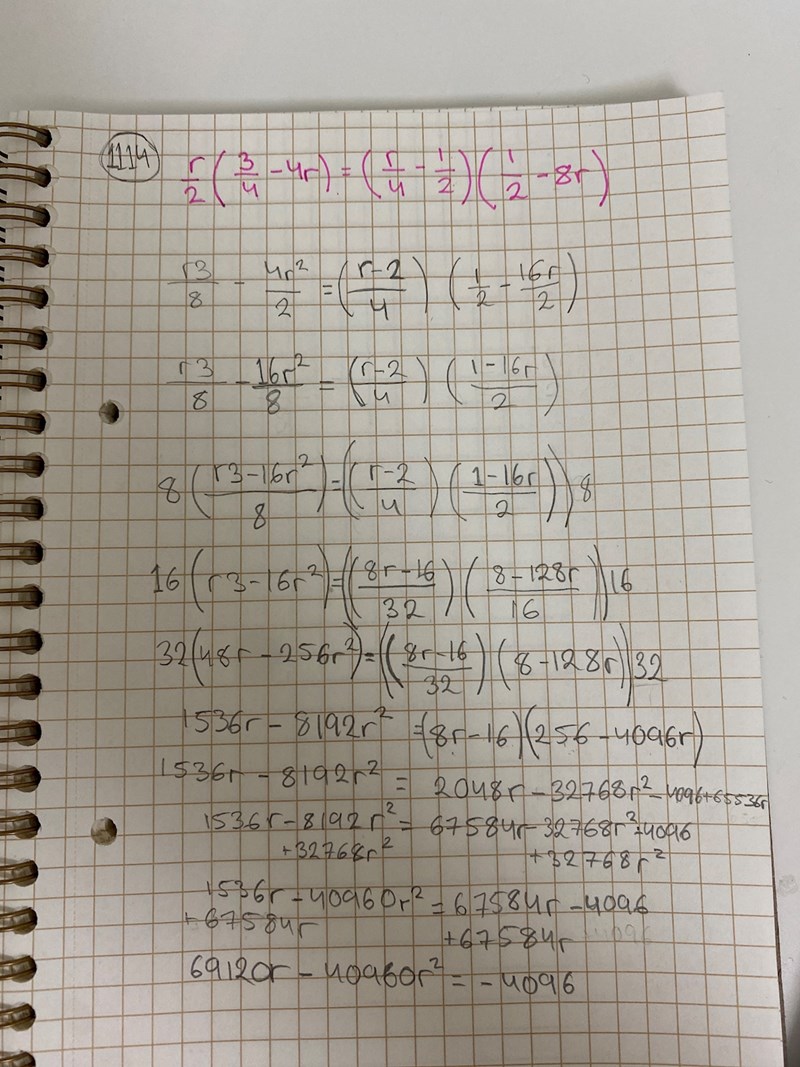 1114 r/2 (3/4 - 4r) = (r/4 - 1/2)(1/2 - 8r)
r3/8 - 4r²/2 = ((r-2)/4) (1/2 - 16r/2)
r3/8 - 16r²/8 = ((r-2)/4) ((1-16r)/2)
8 ((r3-16r²)/8) = (((r-2)/4) ((1-16r)/2)) 8
16 (r3-16r²) = (((8r-16)/32) ((8-128r)/16)) 16
32(48r - 256r²) = (((8r-16)/32) (8-128r)) 32
1536r - 8192r² = (8r-16)(256-4096r)
1536r - 8192r² = 2048r - 32768r² - 4096+65536r
1536r - 8192r² = 67584r - 32768r² - 4096
+32768r² +32768r²
1536r - 40960r² = 67584r - 4096
+67584r +67584r
69120r - 40960r² = -4096